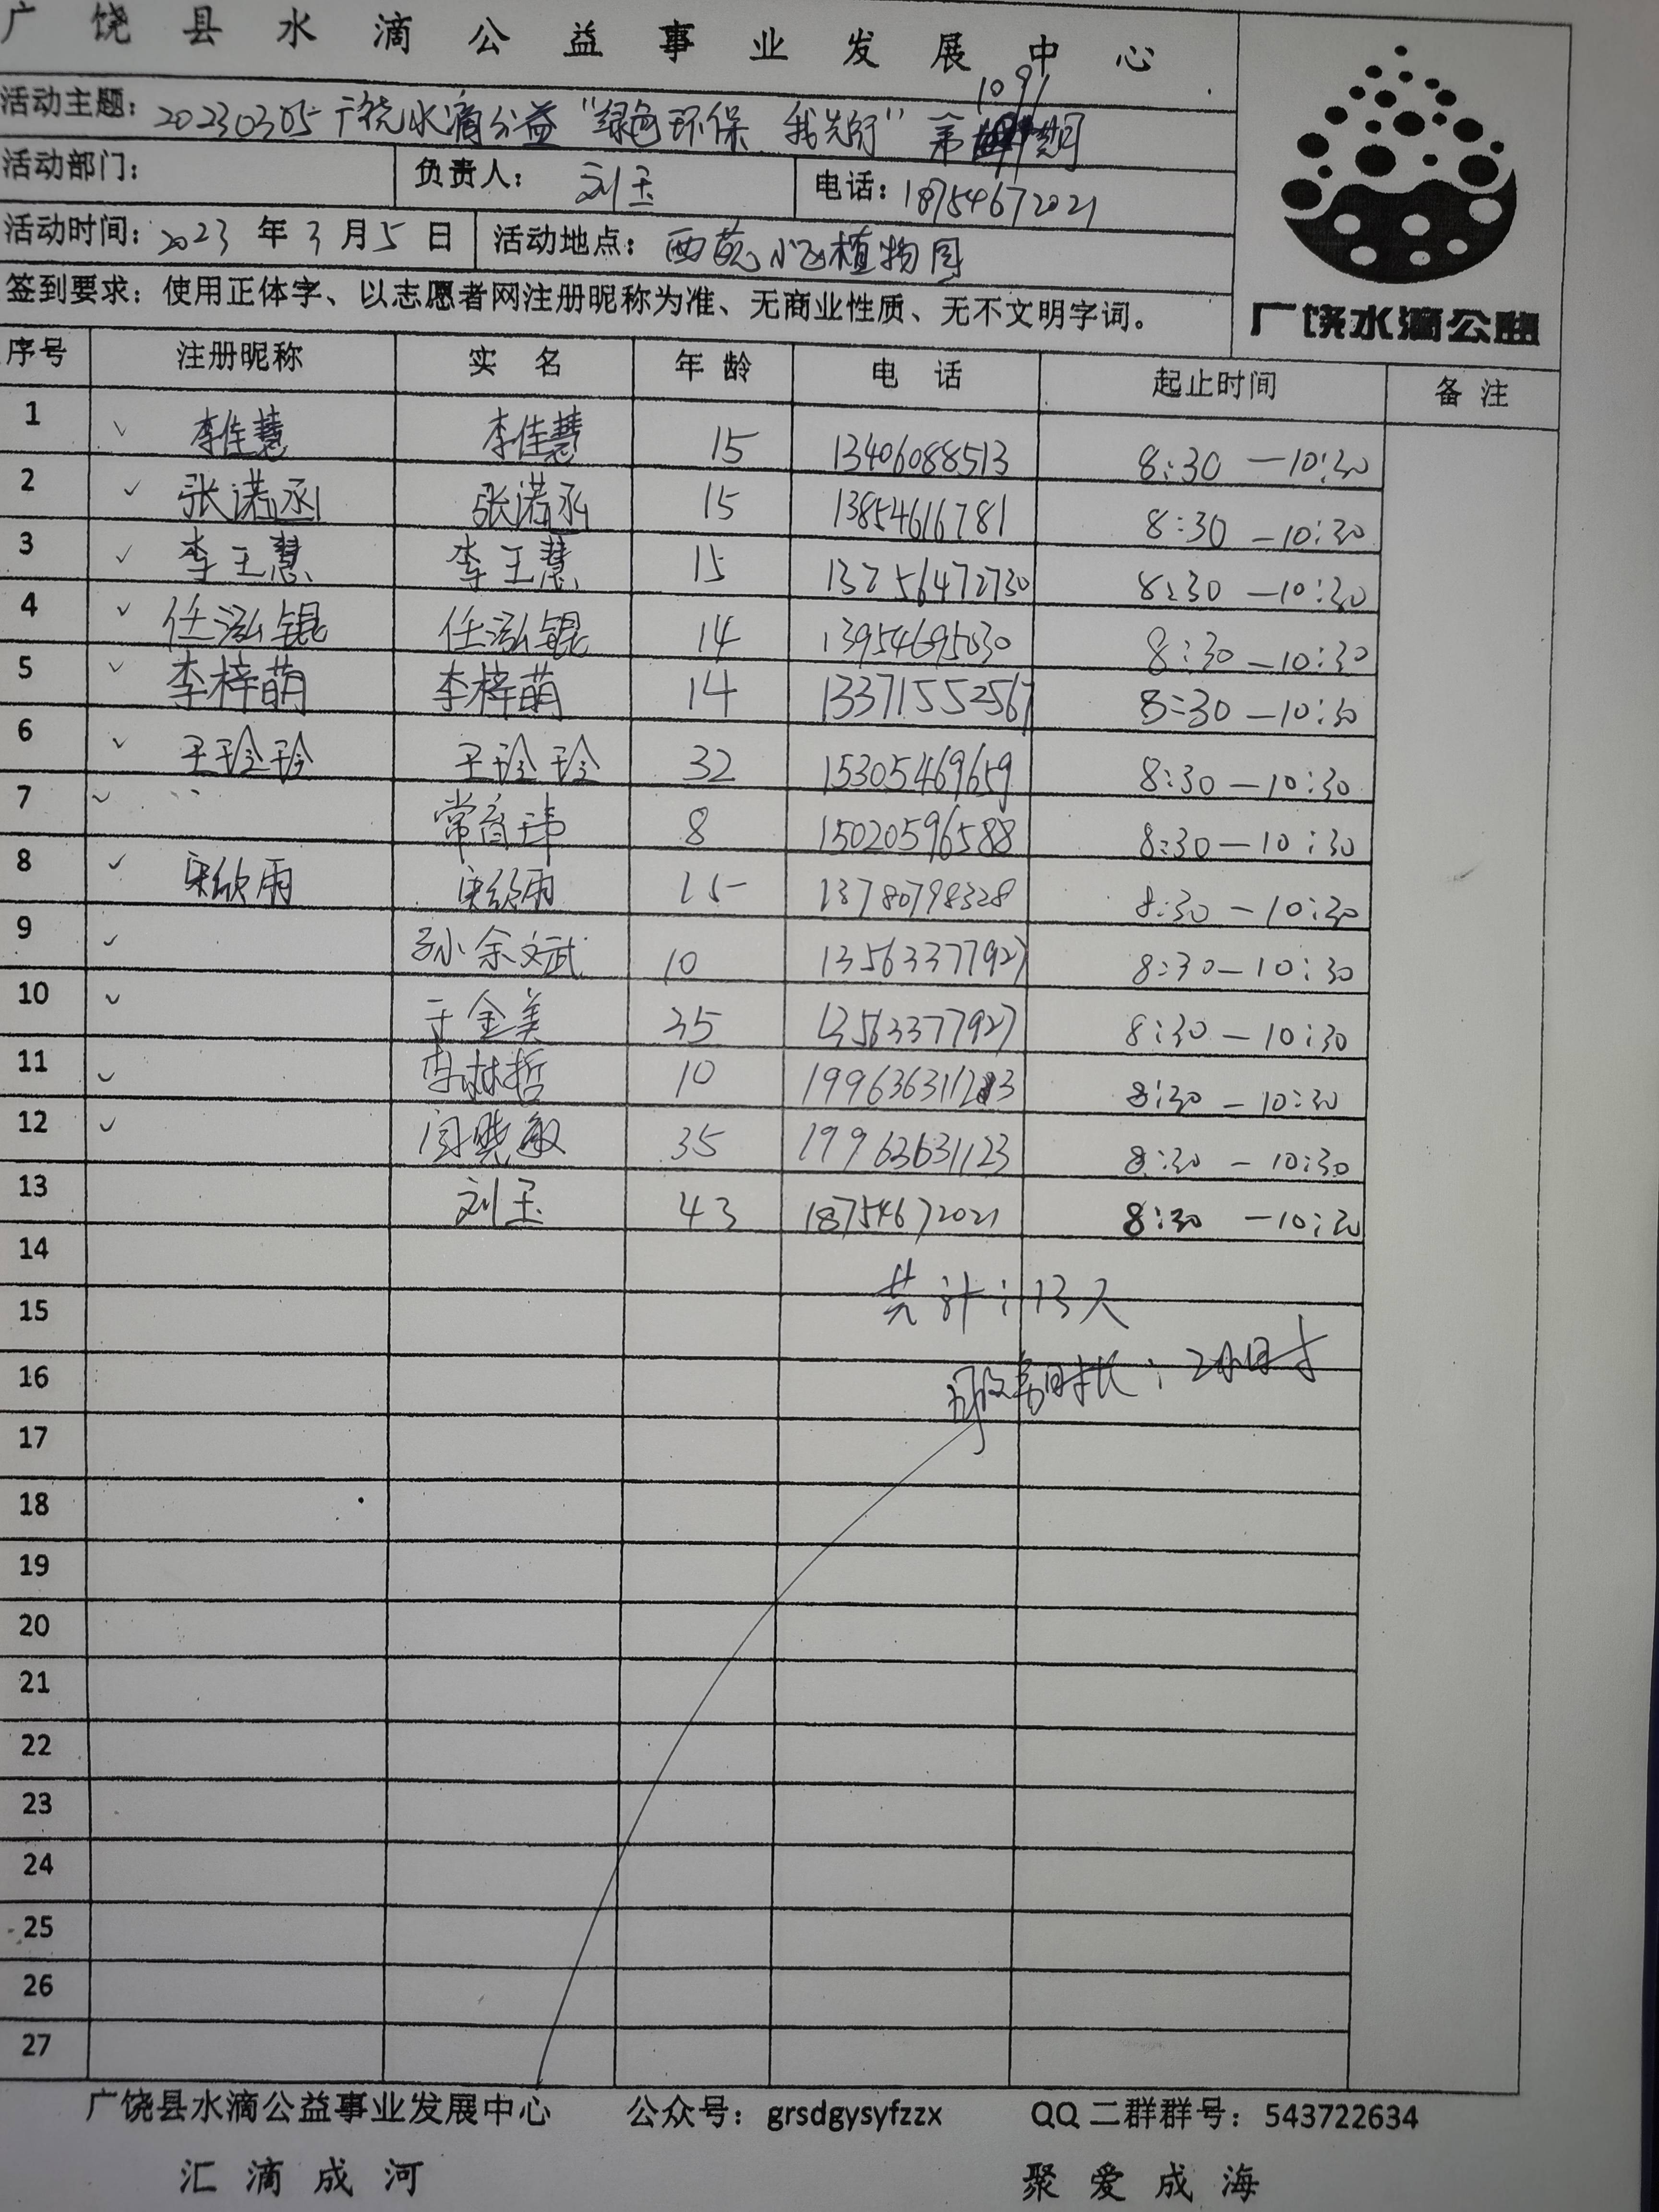 广饶县水滴公益事业发展中心
活动主题：20230305广饶水滴公益“绿色环保 我先行”第1091期
活动部门： 负责人：刘玉 电话：18754672021
活动时间：2023年3月5日 活动地点：西苑小区植物园
签到要求：使用正体字、以志愿者网注册昵称为准、无商业性质、无不文明字词。
广饶水滴公益
序号 注册昵称 实名 年龄 电话 起止时间 备注
1 ✓ 李佳慧 李佳慧 15 13406088513 8:30—10:30
2 ✓ 张诺丞 张诺丞 15 13854616781 8:30—10:30
3 ✓ 李王慧 李王慧 15 13256472730 8:30—10:30
4 ✓ 任泓锟 任泓锟 14 13954695030 8:30—10:30
5 ✓ 李梓萌 李梓萌 14 13371552567 8:30—10:30
6 ✓ 王玲玲 王玲玲 32 15305469659 8:30—10:30
7 ✓ 常育玮 8 15020596588 8:30—10:30
8 ✓ 宋欣雨 宋欣雨 15 13780798328 8:30—10:30
9 ✓ 孙余文武 10 13563377927 8:30—10:30
10 ✓ 于金美 35 13563377927 8:30—10:30
11 ✓ 李林哲 10 8:30—10:30
12 ✓ 闫晓敏 35 19963631123 8:30—10:30
13 刘玉 43 18754672021 8:30—10:30
14
共计：13人
15
16 服务时长：2小时
17
18
19
20
21
22
23
24
25
26
27
广饶县水滴公益事业发展中心 公众号：grsdgysyfzzx QQ二群群号：543722634
汇滴成河 聚爱成海